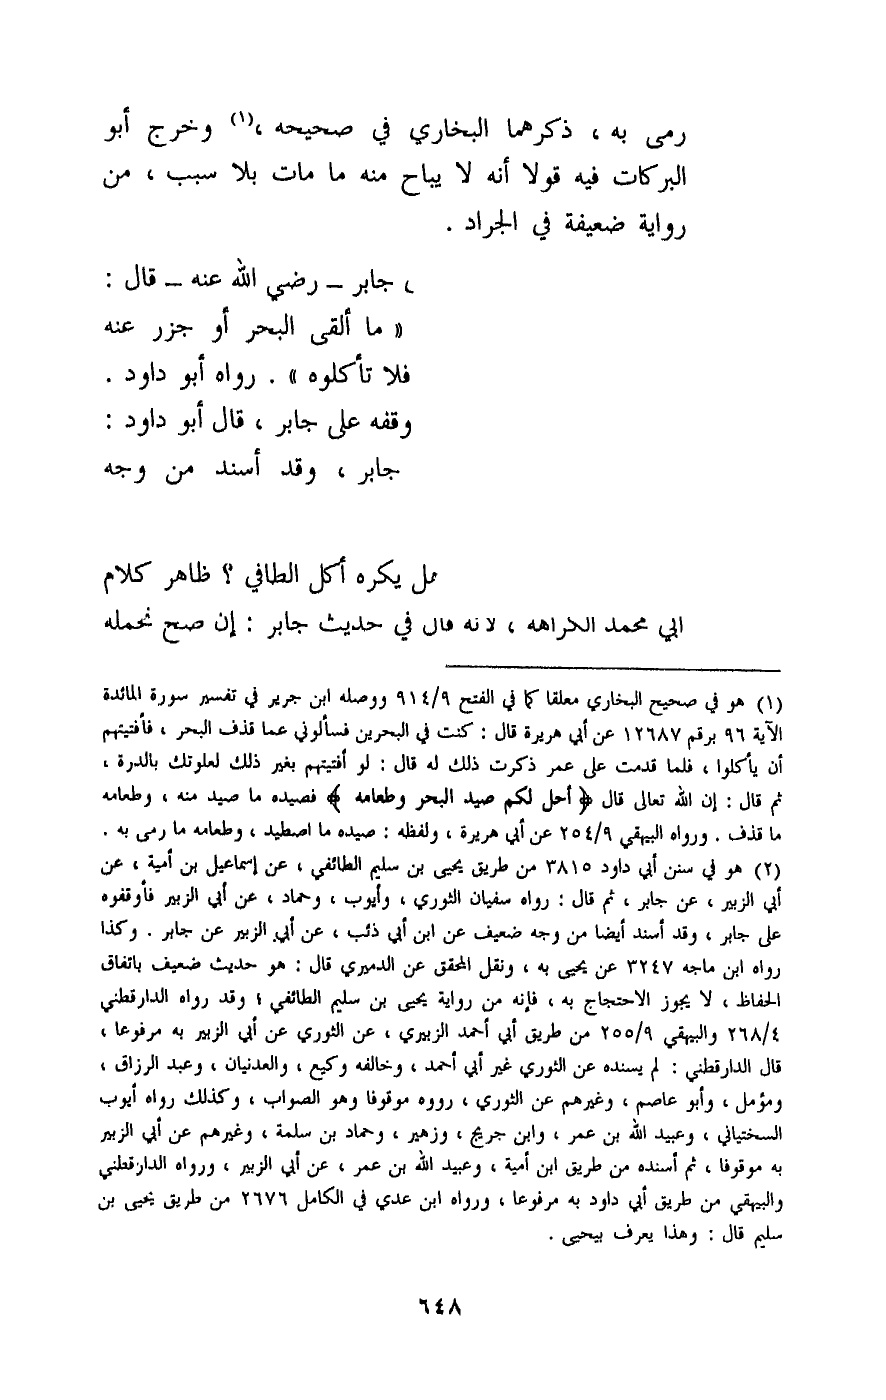 رمى به ، ذكرهما البخاري في صحيحه ،(١) وخرج أبو
البركات فيه قولا أنه لا يباح منه ما مات بلا سبب ، من
رواية ضعيفة في الجراد .
، جابر – رضي الله عنه – قال :
« ما ألقى البحر أو جزر عنه
فلا تأكلوه » . رواه أبو داود .
وقفه على جابر ، قال أبو داود :
جابر ، وقد أسند من وجه
يكره أكل الطافي ؟ ظاهر كلام
ابي محمد الكراهه ، لانه قال في حديث جابر : إن صح نحمله
(١) هو في صحيح البخاري معلقا كما في الفتح ٩١٤/٩ ووصله ابن جرير في تفسير سورة المائدة
الآية ٩٦ برقم ١٢٦٨٧ عن أبي هريرة قال : كنت في البحرين فسألوني عما قذف البحر ، فأفتيتهم
أن يأكلوا ، فلما قدمت على عمر ذكرت ذلك له قال : لو أفتيتهم بغير ذلك لعلوتك بالدرة ،
ثم قال : إن الله تعالى قال ﴿ أحل لكم صيد البحر وطعامه ﴾ فصيده ما صيد منه ، وطعامه
ما قذف . ورواه البيهقي ٢٥٤/٩ عن أبي هريرة ، ولفظه : صيده ما اصطيد ، وطعامه ما رمى به .
(٢) هو في سنن أبي داود ٣٨١٥ من طريق يحيى بن سليم الطائفي ، عن إسماعيل بن أمية ، عن
أبي الزبير ، عن جابر ، ثم قال : رواه سفيان الثوري ، وأيوب ، وحماد ، عن أبي الزبير فأوقفوه
على جابر ، وقد أسند أيضا من وجه ضعيف عن ابن أبي ذئب ، عن أبي الزبير عن جابر . وكذا
رواه ابن ماجه ٣٢٤٧ عن يحيى به ، ونقل المحقق عن الدميري قال : هو حديث ضعيف باتفاق
الحفاظ ، لا يجوز الاحتجاج به ، فإنه من رواية يحيى بن سليم الطائفي ؛ وقد رواه الدارقطني
٢٦٨/٤ والبيهقي ٢٥٥/٩ من طريق أبي أحمد الزبيري ، عن الثوري عن أبي الزبير به مرفوعا ،
قال الدارقطني : لم يسنده عن الثوري غير أبي أحمد ، وخالفه وكيع ، والعدنيان ، وعبد الرزاق ،
ومؤمل ، وأبو عاصم ، وغيرهم عن الثوري ، رووه موقوفا وهو الصواب ، وكذلك رواه أيوب
السختياني ، وعبيد الله بن عمر ، وابن جريج ، وزهير ، وحماد بن سلمة ، وغيرهم عن أبي الزبير
به موقوفا ، ثم أسنده من طريق ابن أمية ، وعبيد الله بن عمر ، عن أبي الزبير ، ورواه الدارقطني
والبيهقي من طريق أبي داود به مرفوعا ، ورواه ابن عدي في الكامل ٢٦٧٦ من طريق يحيى بن
سليم قال : وهذا يعرف بيحيى .
٦٤٨